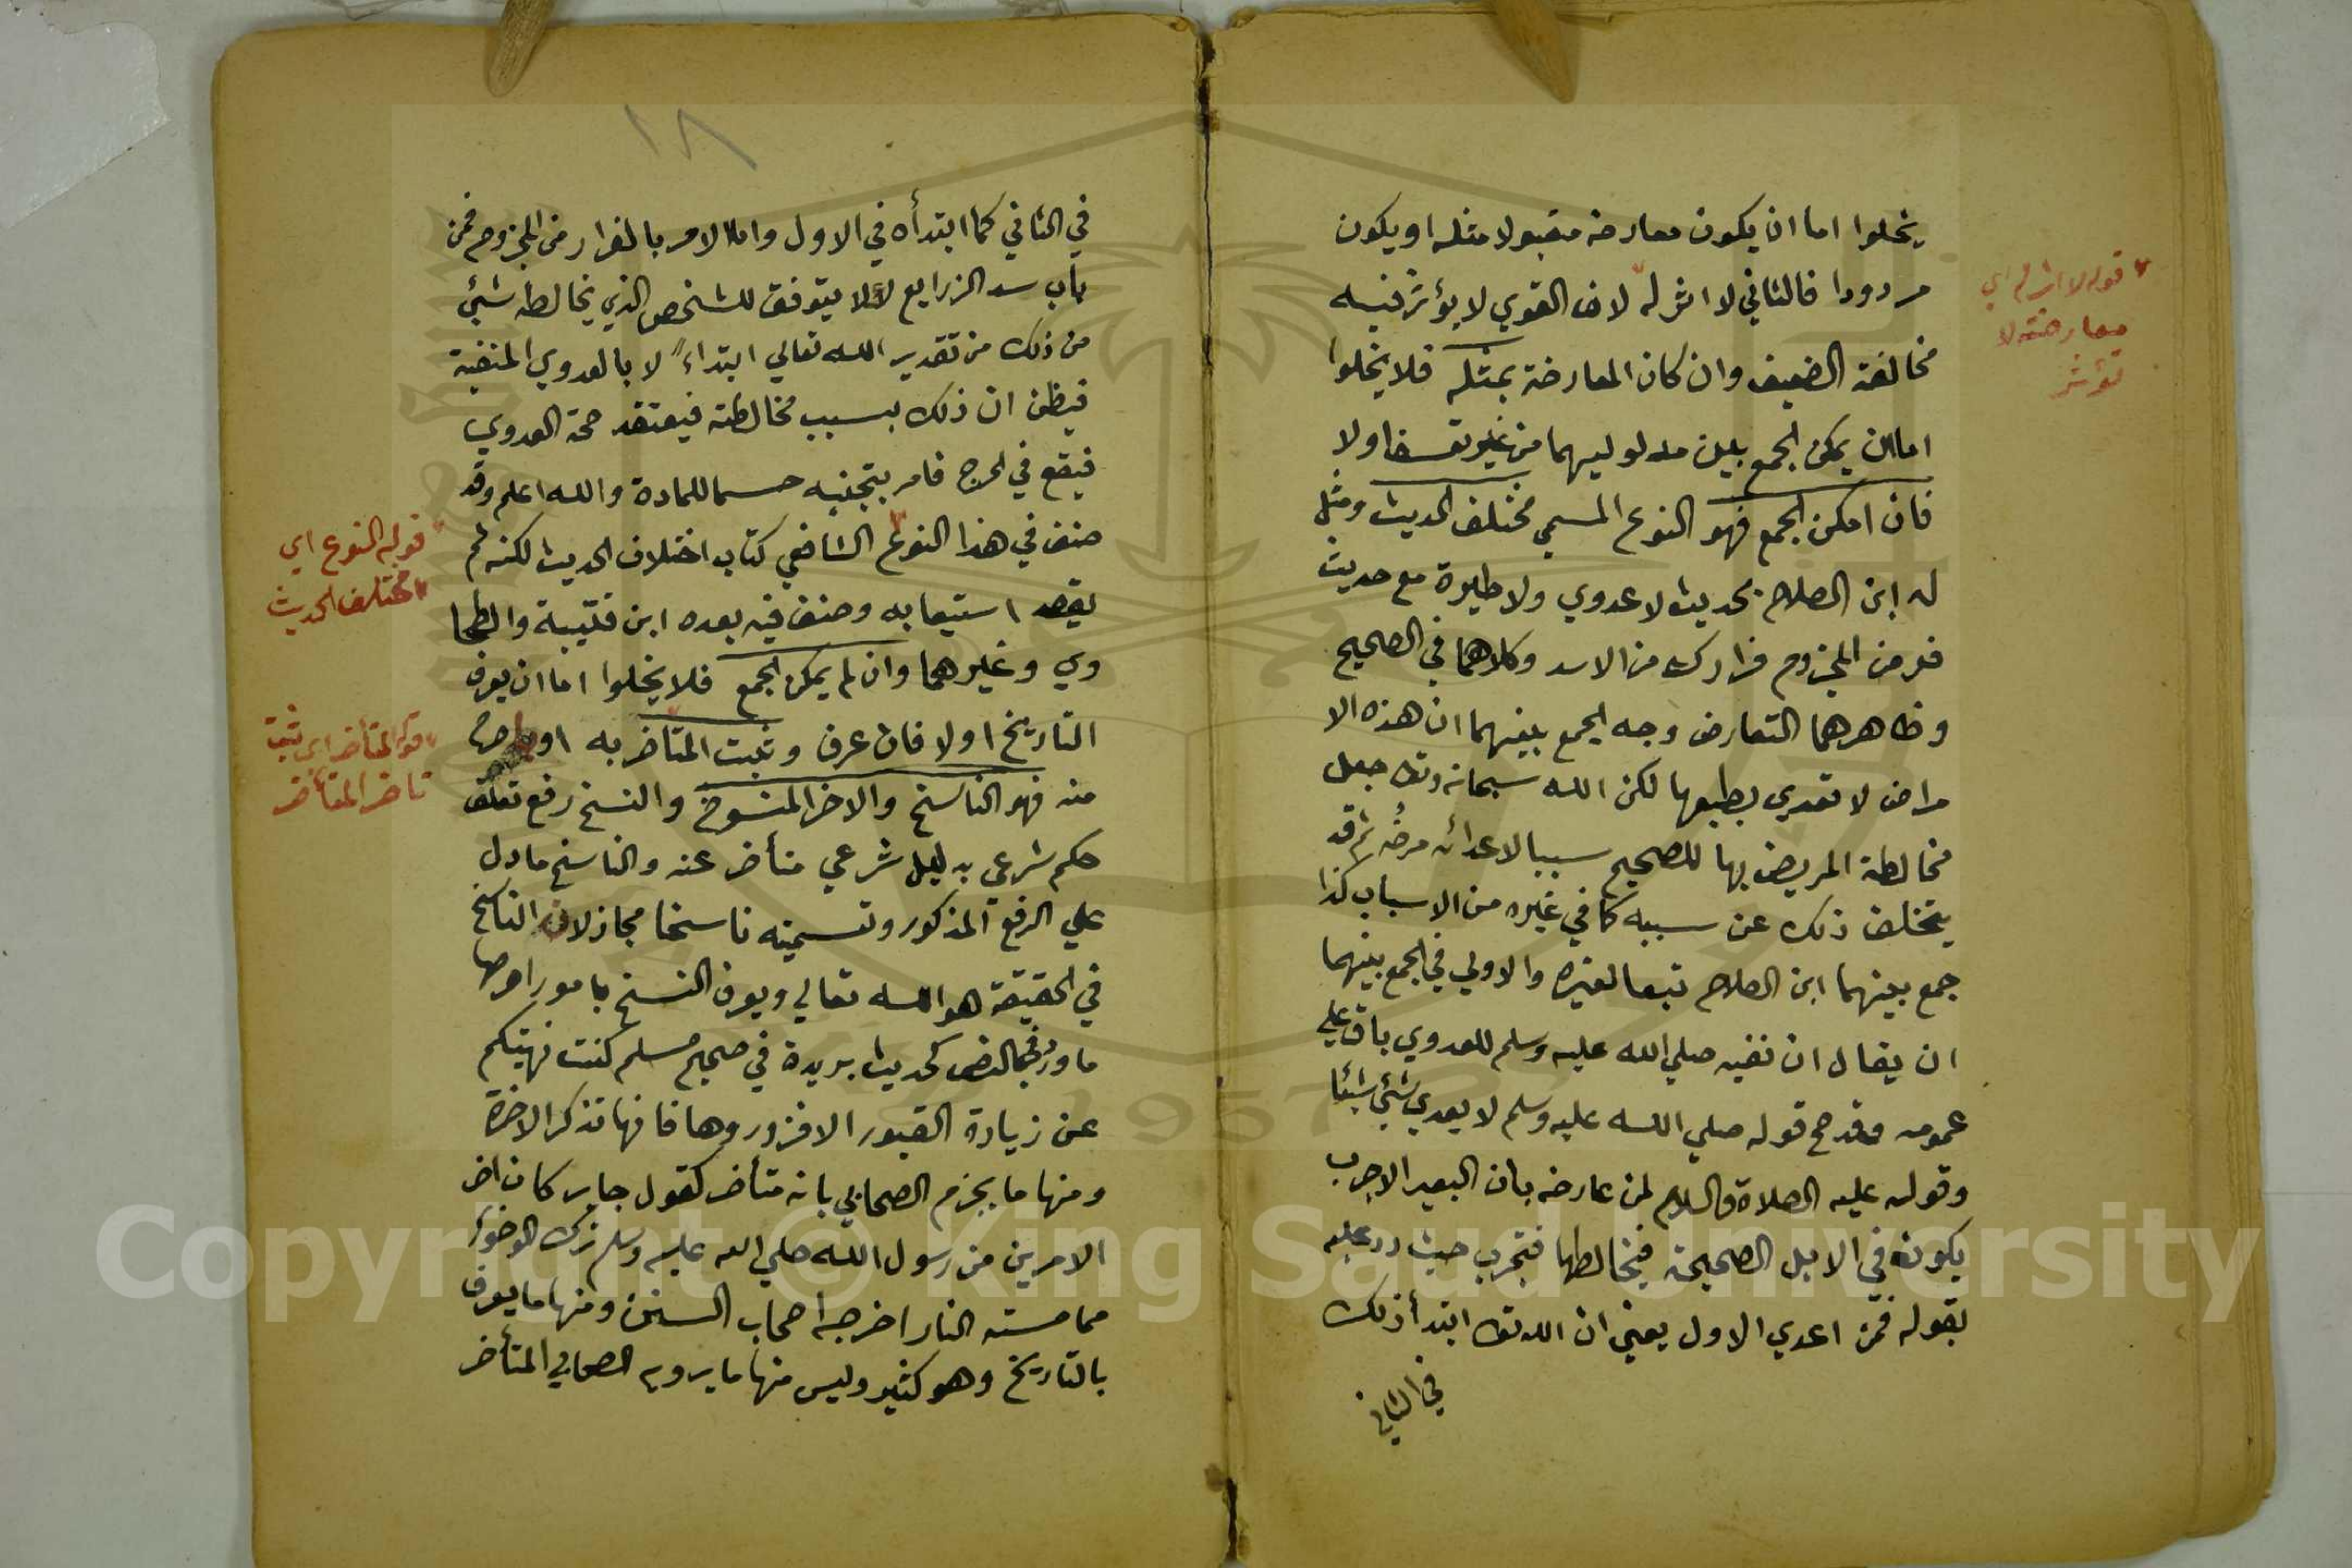 يخلوا اما ان يكون معارضه مقبولا مثله او يكون
مردودا فالثاني لا اثر له لان القوي لا يؤثر فيه
مخالفة الضعيف وان كان المعارضة بمثله فلا يخلوا
اما ان يمكن الجمع بين مدلوليهما من غير تعسف او لا
فان امكن الجمع فهو النوع المسمي مختلف الحديث ومثل
له ابن الصلاح بحديث لا عدوي ولا طيرة مع حديث
فر من المجزوم فرارك من الاسد وكلاهما في الصحيح
وظاهرهما التعارض وجه الجمع بينهما ان هذه الا
مراض لا تعدي بطبعها لكن الله سبحانه وتعا جعل
مخالطة المريض بها للصحيح سببا لاعدائه مرضه ثم قد
يتخلف ذلك عن سببه كما في غيره من الاسباب كذا
جمع بينهما ابن الصلاح تبعا لغيره والاولي في الجمع بينهما
ان يقال ان نفيه صلي الله عليه وسلم للعدوي باق علي
عمومه وقد صح قوله صلي الله عليه وسلم لا يعدي شئ شيئا
وقوله عليه الصلاة والسلام لمن عارضه بان البعير الاجرب
يكون في الابل الصحيحة فيخالطها فتجرب حيث رد عليه
بقوله فمن اعدي الاول يعني ان الله تعا ابتدأ ذلك
في الثاني
قوله لا اثر له اي
معارضته لا
تؤثر
١٨
في الثاني كما ابتدأه في الاول واما الامر بالفرار من المجزوم فمن
باب سد الزرايع لئلا يتوفق للشخص الذي يخالطه شئ
من ذلك من تقدير الله تعالي ابتداء لا بالعدوي المنفية
فيظن ان ذلك بسبب مخالطته فيعتقد صحة العدوي
فيقع في الحرج فامر بتجنبه حسما للمادة والله اعلم وقد
صنف في هذا النوع الشافعي كتاب اختلاف الحديث لكنه لم
يقصد استيعابه وصنف فيه بعده ابن قتيبة والطحا
وي وغيرهما وان لم يمكن الجمع فلا يخلوا اما ان يعرف
التاريخ او لا فان عرف وثبت المتاخر به او باصرح
منه فهو الناسخ والاخر المنسوخ والنسخ رفع تعلق
حكم شرعي بدليل شرعي متأخر عنه والناسخ ما دل
علي الرفع المذكور وتسميته ناسخا مجاز لان الناسخ
في الحقيقة هو الله تعالي ويعرف النسخ بامور اصرحها
ما ورد في النص كحديث بريدة في صحيح مسلم كنت نهيتكم
عن زيادة القبور الا فزوروها فانها تذكر الاخرة
ومنها ما يجزم الصحابي بانه متأخر كقول جابر كان اخر
الامرين من رسول الله صلي الله عليه وسلم ترك الوضوء
مما مسته النار اخرجه اصحاب السنن ومنها ما يعرف
بالتاريخ وهو كثير وليس منها ما يرويه الصحابي المتأخر
قوله النوع اي
مختلف الحديث
قوله المتاخر اي ثبت
تاخر المتأخر
Copyright © King Saud University
1957